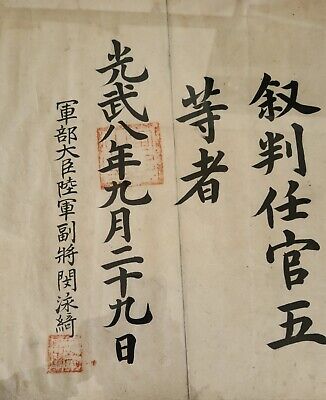 叙判任官五
等者
光武八年九月二十九日
軍部大臣陸軍副將閔泳綺